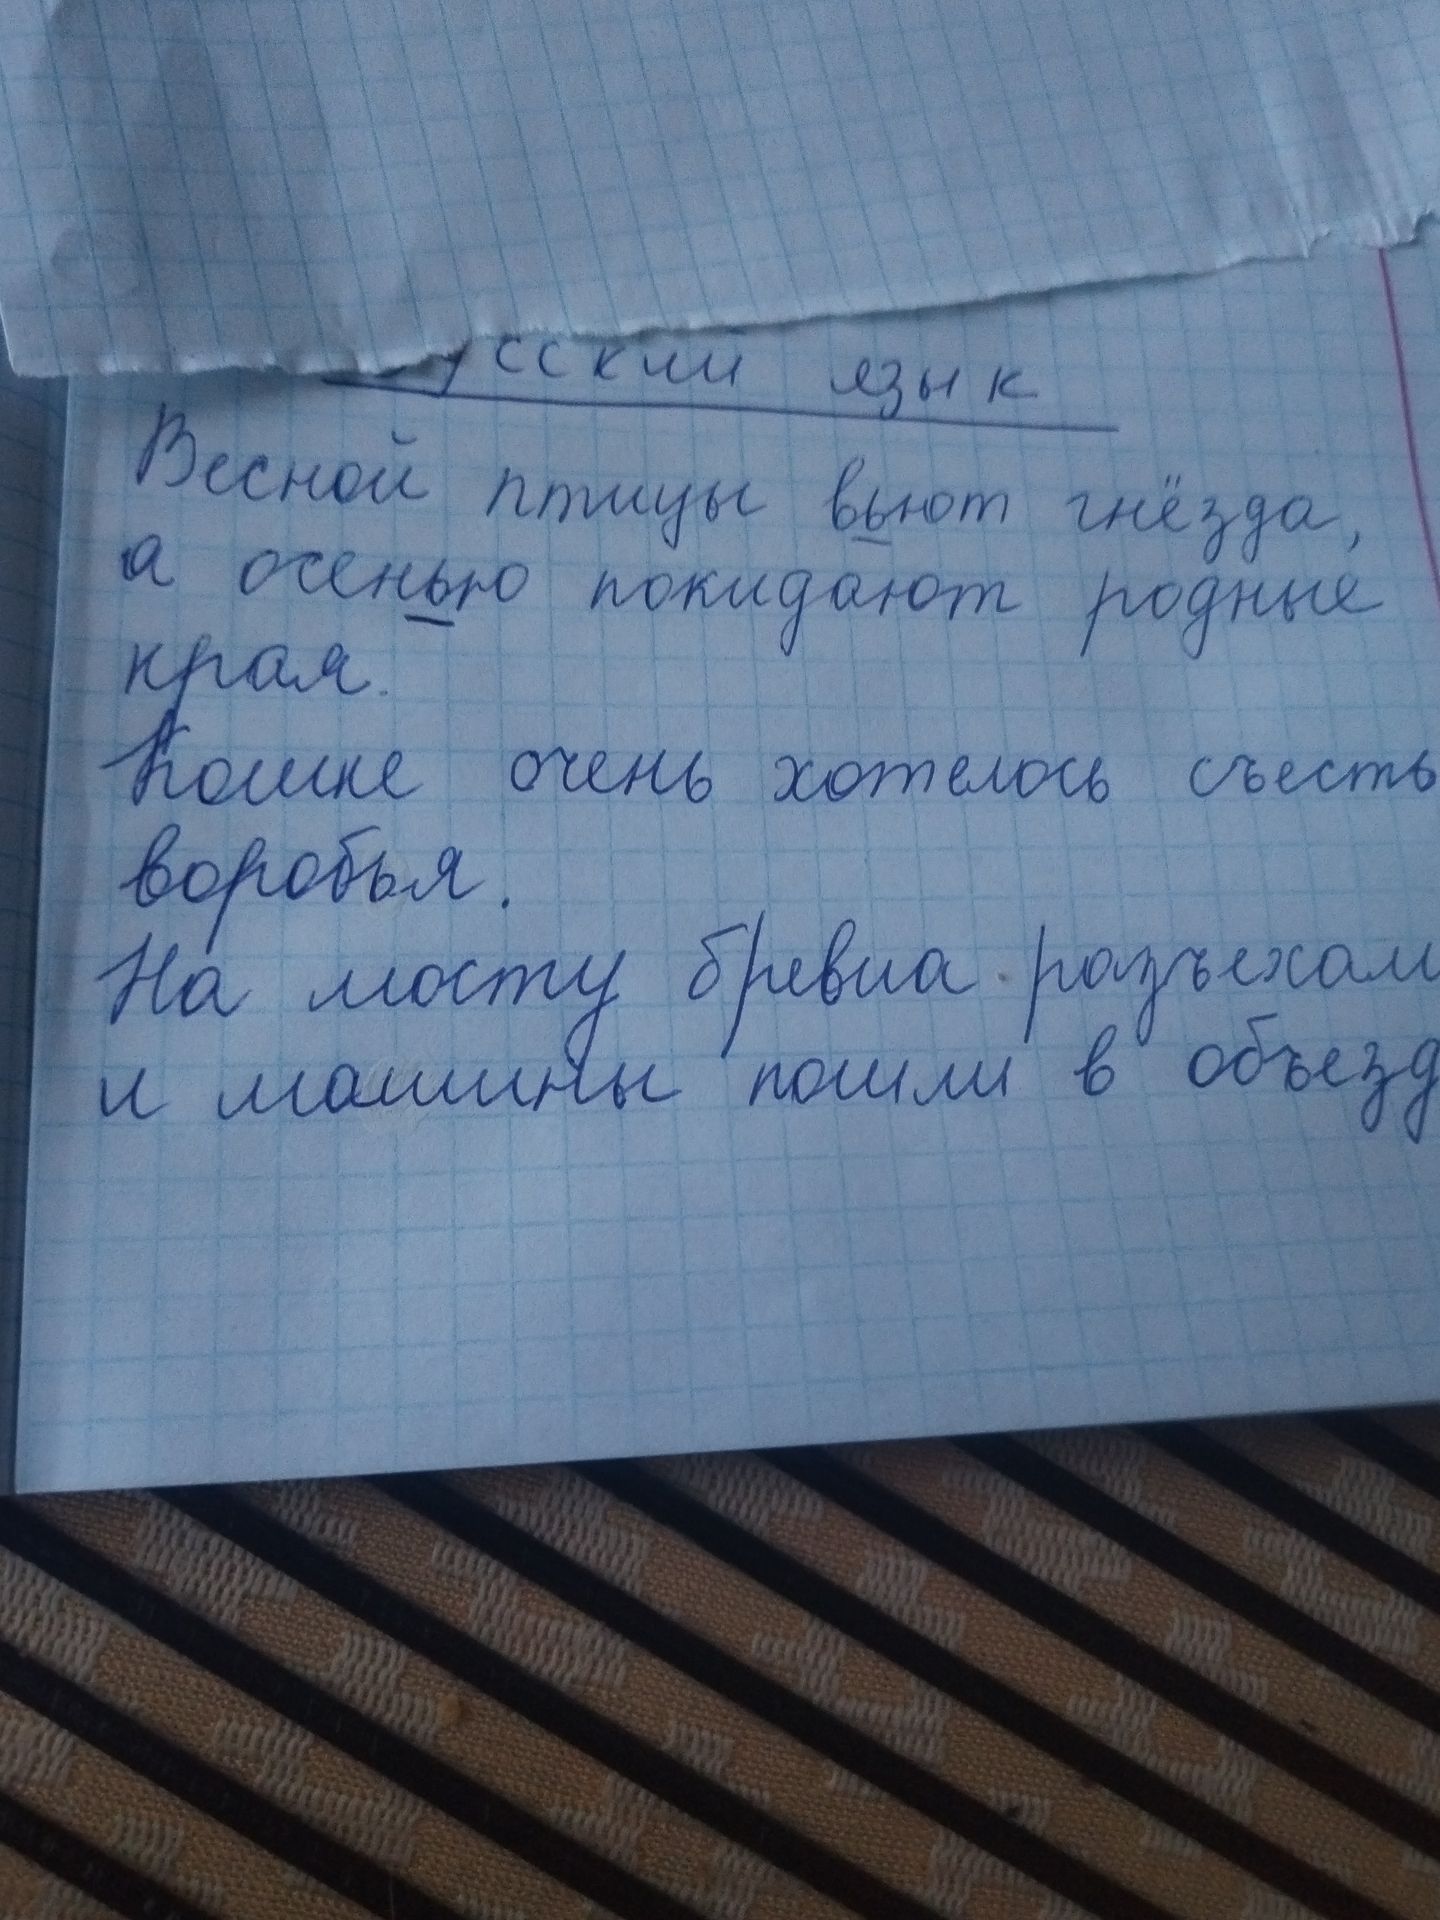 усский язык
Весной птицы вьют гнёзда,
а осенью покидают родные
края.
Кошке очень хотелось съесть
воробья.
На мосту бревна разъехали
и машины пошли в объезд